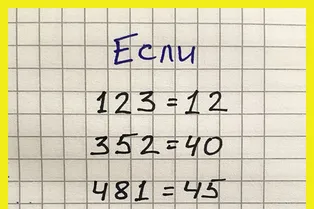 Если
123=12
352=40
481=45